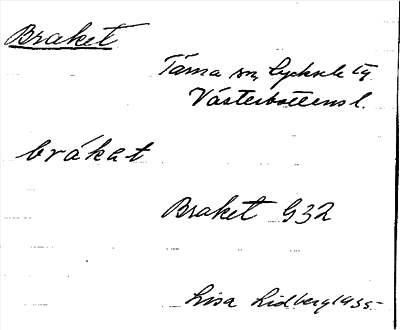 Braket
Tärna sn, Lycksele tg
Västerbottens l.
brákat
Braket G32
Lisa Lidberg 1935